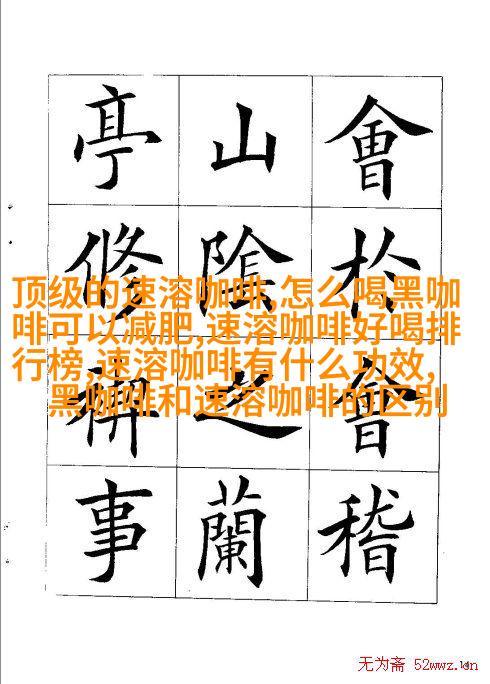 會於會稽
山陰之蘭
亭修禊事
顶级的速溶咖啡,怎么喝黑咖
啡可以减肥,速溶咖啡好喝排
行榜,速溶咖啡有什么功效,
黑咖啡和速溶咖啡的区别
无为斋 52wwz.cn